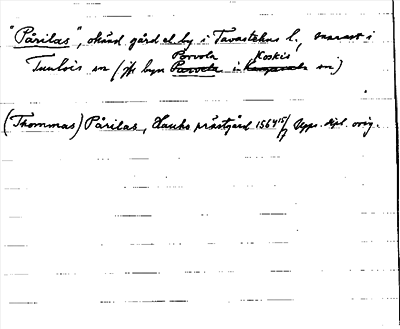 "Pärilas", okänd gård el. by i Tavastehus l., snarast i
Porvola Koskis
Tuulois sn (jfr byn i sn)
(Thommas) Pärilas, Hauho prästgård 1564 15/7 Upps. dipl. orig.